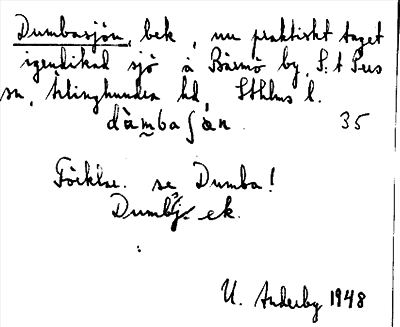 Dumbasjön, bek, nu praktiskt taget
igendikad sjö å Bärmö by, S:t Pers
sn, Ärlinghundra hd, Sthlms l.
dåmbaʃön. 35
Förklar. se Dumba!
Dumbsj. ek.
U. Anderby 1948